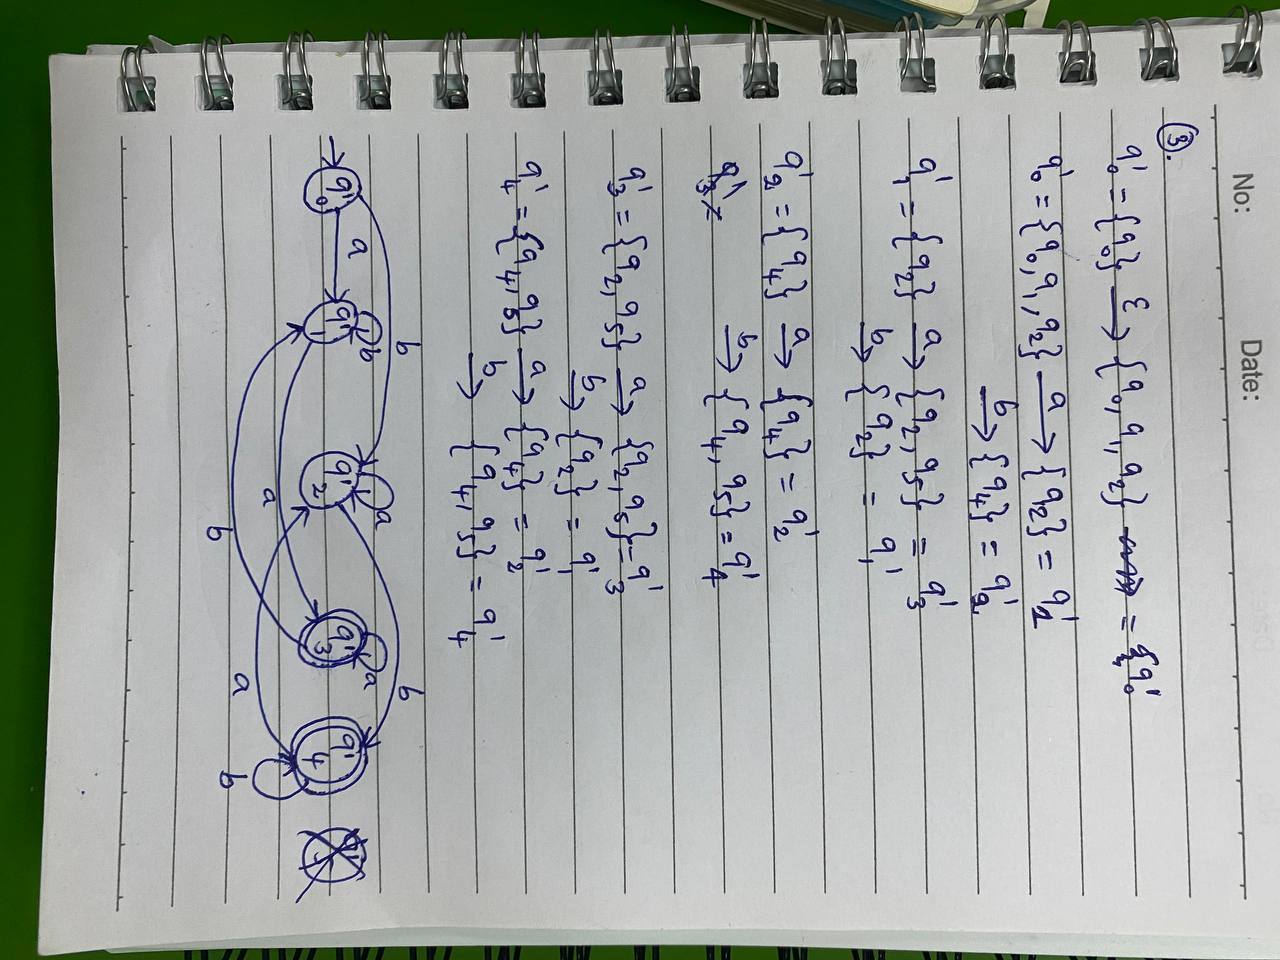 No:
Date:
③.
q'₀ = {q₀} ε→ {q₀, q₁, q₂} = q'₀
q'₀ = {q₀, q₁, q₂} a→ {q₂} = q'₁
b→ {q₄} = q'₂
q'₁ = {q₂} a→ {q₂, q₅} = q'₃
b→ {q₂} = q'₁
q'₂ = {q₄} a→ {q₄} = q'₂
b→ {q₄, q₅} = q'₄
q'₃ = {q₂, q₅} a→ {q₂, q₅} = q'₃
b→ {q₂} = q'₁
q'₄ = {q₄, q₅} a→ {q₄} = q'₂
b→ {q₄, q₅} = q'₄
b b
b a a
q'₀ a q'₁ q'₂ q'₃ q'₄
a
b a b